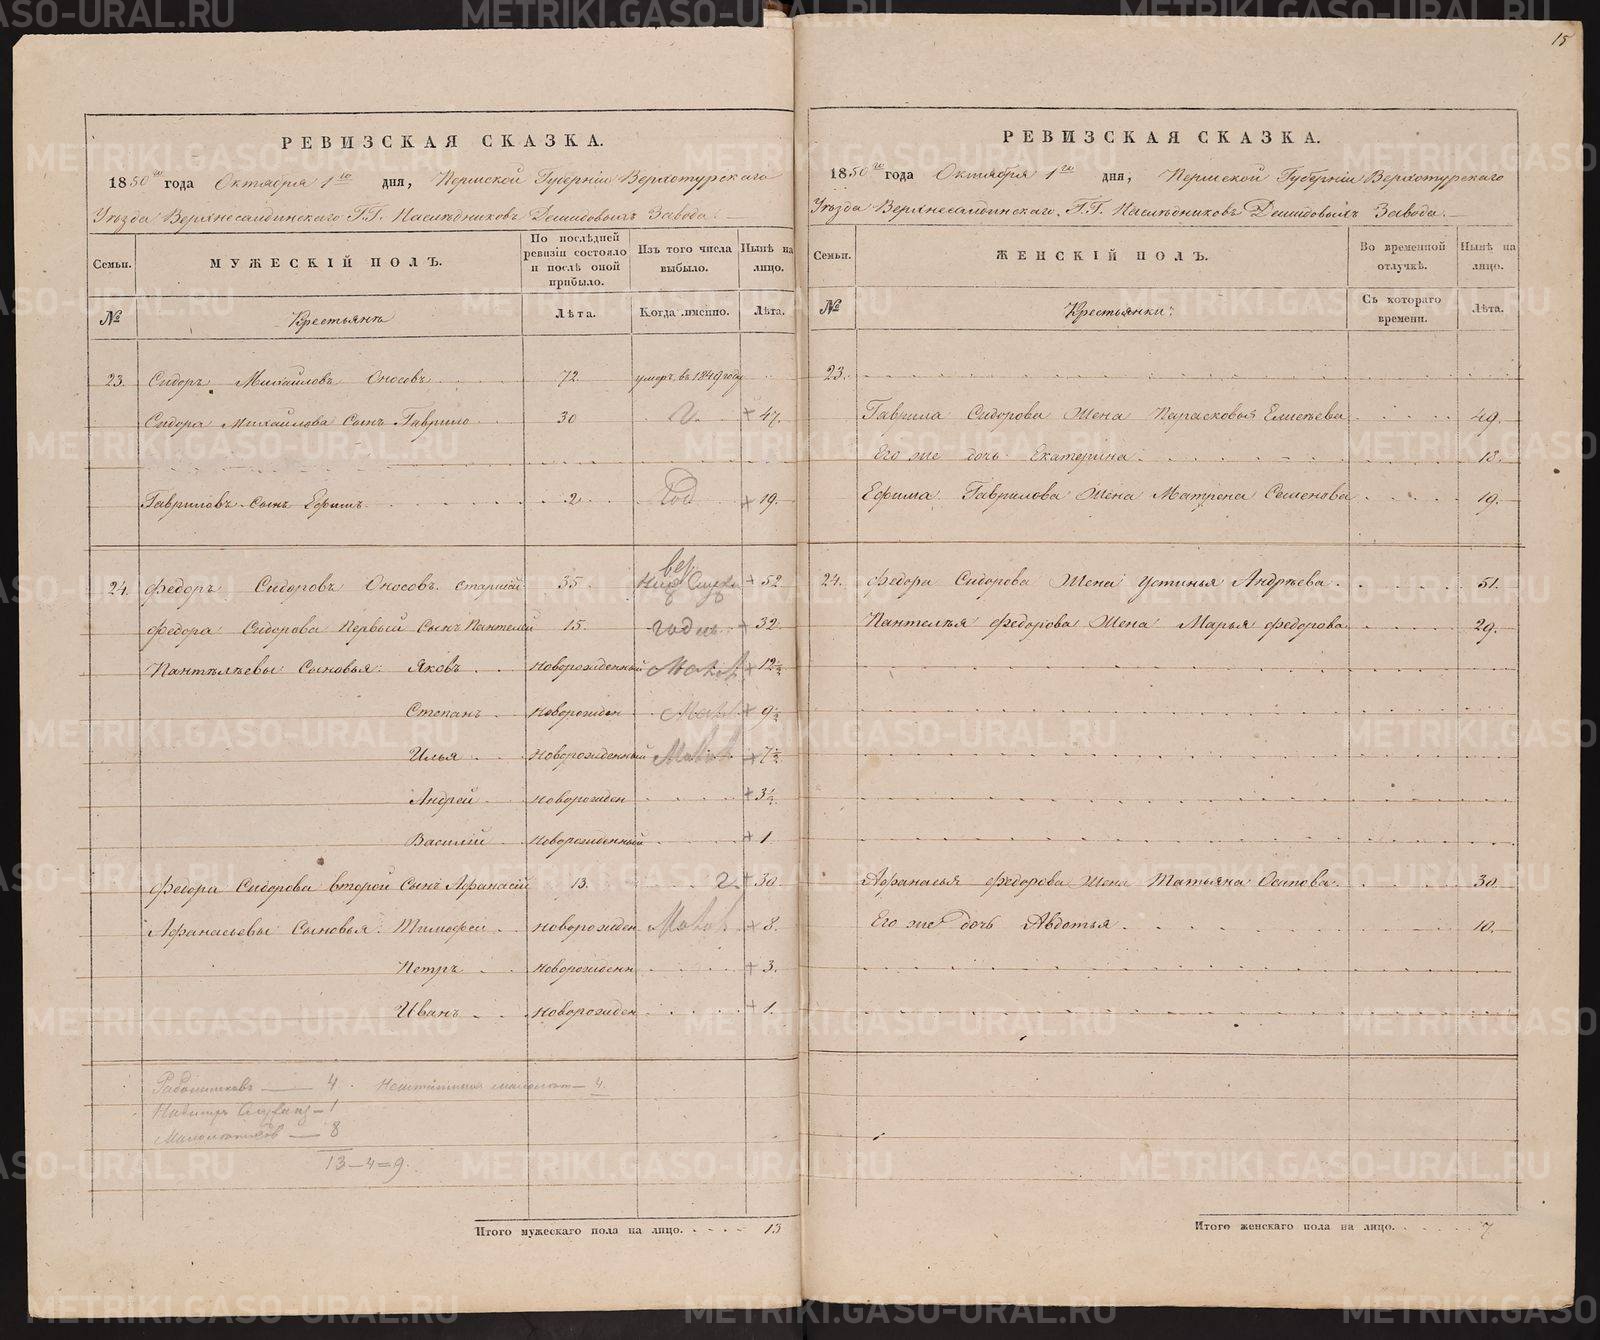 15
РЕВИЗСКАЯ СКАЗКА.
1850го года Октября 1го дня, Пермской Губернiи Верхотурскаго
Уѣзда Верхнесалдинскаго Г.Г. Наслѣдниковъ Демидовыхъ Завода.
Семьи. МУЖЕСКIЙ ПОЛЪ. По послѣдней ревизiи состояло и послѣ оной прибыло. Изъ того числа выбыло. Нынѣ на лицо.
№ Крестьянъ Лѣта. Когда именно. Лѣта.
23. Сидоръ Михайловъ Оносовъ 72 умеръ въ 1849 году
Сидора Михайлова Сынъ Гаврило 30 + 47.
Гавриловъ Сынъ Ефимъ 2 Год + 19.
24. Федоръ Сидоровъ Оносовъ старшiй 35. + 52
Федора Сидорова Первый Сынъ Пантелей 15. годенъ + 32
Пантелѣевы Сыновья: Яковъ Новорожденный Малол + 12½
Степанъ Новорожден Мал + 9½
Илья Новорожденный Малол + 7½
Андрей Новорожден + 3½
Василiй Новорожденный + 1
Федора Сидорова второй Сынъ Афанасiй 13. 2. + 30.
Афанасьевы Сыновья: Тимофей Новорожден Малол + 8.
Петръ Новорожденн + 3.
Иванъ Новорожден + 1.
Работниковъ — 4. малолѣт — 4.
— 1
Малолѣтковъ — 8
13 — 4 = 9.
Итого мужескаго пола на лицо. 13
РЕВИЗСКАЯ СКАЗКА.
1850го года Октября 1го дня, Пермской Губернiи Верхотурскаго
Уѣзда Верхнесалдинскаго Г.Г. Наслѣдниковъ Демидовыхъ Завода.
Семьи. ЖЕНСКIЙ ПОЛЪ. Во временной отлучкѣ. Нынѣ на лицо.
№ Крестьянки: Съ котораго времени. Лѣта.
23.
Гаврила Сидорова Жена Парасковья Елисѣева 49.
Его же дочь Екатерина 13.
Ефима Гаврилова Жена Матрена Семенова 19.
24. Федора Сидорова Жена Устинья Андрѣева 51.
Пантелѣя Федорова Жена Марья Федорова 29.
Афанасья Федорова Жена Татьяна Осипова 30.
Его же дочь Авдотья 10.
Итого женскаго пола на лицо. 7
METRIKI.GASO-URAL.RU